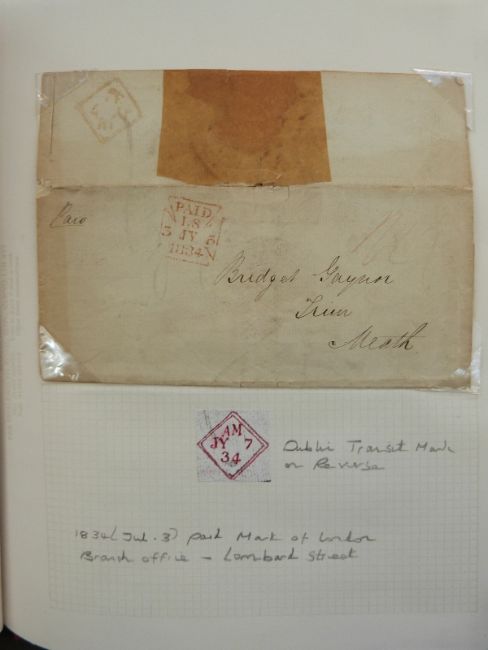 Paid
PAID
LS
3 JY 3
1834
Bridget Gaynor
Trim
Meath
AM
JY 7
34
Dublin Transit Mark
on Reverse
1834 (Jul. 3) Paid Mark of London
Branch office - Lombard Street